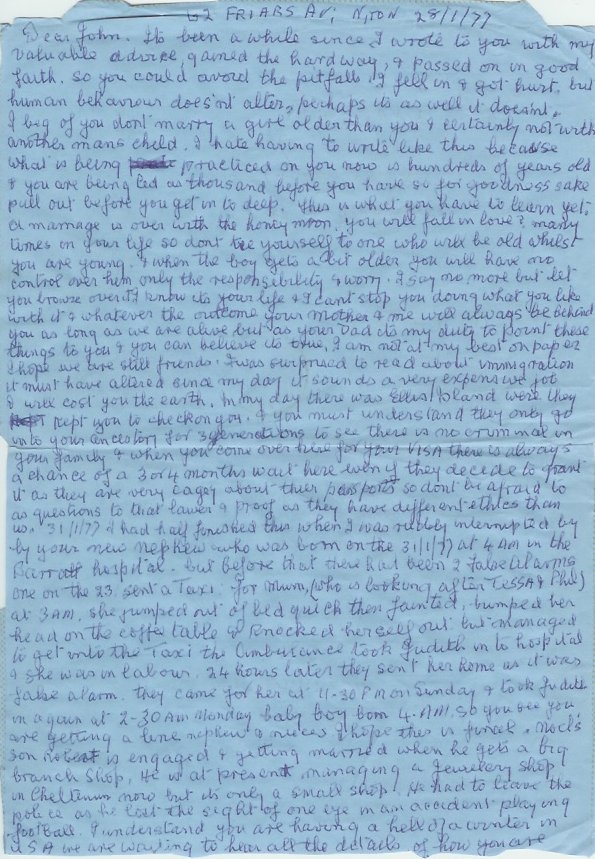 62 FRIARS AV; NITON 28/1/77
Dear John. Its been a while since I wrote to you with my
valuable advice, gained the hard way, & passed on in good
faith. so you could avoid the pitfalls I fell in & got hurt, but
human behaviour does'nt alter, perhaps its as well it does'nt.
I beg of you dont marry a girl older than you & certainly not with
another mans child. I hate having to write like this because
what is being practiced on you now is hundreds of years old
& you are being led as thousand before you have so for goodness sake
pull out before you get in to deep. this is what you have to learn yet.
a marriage is over with the honey moon. you will fall in love? many
times in your life so dont tie yourself to one who will be old whilst
you are young. & when the boy gets a bit older you will have no
control over him only the responsibility & worry. I say no more but let
you browse over it I know its your life & I cant stop you doing what you like
with it & whatever the outcome your mother & me will always be behind
you as long as we are alive but as your Dad its my duty to point these
things to you & you can believe its true, I am not at my best on paper
I hope we are still friends. I was surprised to read about immigration
it must have altered since my day it sounds a very expensive job
& will cost you the earth. In my day there was Ellis Island were they
kept you to check on you. & you must understand they only go
into your ancestory for 3 generations to see there is no criminal in
your family & when you come over here for your VISA there is always
a chance of a 3 or 4 months wait here even if they decide to grant
it as they are very cagey about thier passports so dont be afraid to
as questions to that lawer & proof as they have different ethics than
us. 31/1/77 I had half finished this when I was rudely interrupted by
by your new nephew who was born on the 31/1/77 at 4 AM in the
Barratt hospital. but before that there had been 2 false alarms
one on the 23. sent a Taxi for mum, (who is looking after TESSA & Phil)
at 3 AM. she jumped out of bed quick then fainted, bumped her
head on the coffee table & knocked herself out but managed
to get into the Taxi the ambulance took Judith in to hospital
& she was in labour. 24 hours later they sent her home as it was
false alarm. they came for her at 11-30 PM on Sunday & took Judith
in again at 2-30 AM Monday baby boy born 4. AM. so you see you
are getting a few nephew & nieces I hope this is finale. Noel's
son Robert is engaged & getting married when he gets a big
branch shop, He is at present managing a Jewelery shop
in Cheltnum now but its only a small shop. He had to leave the
police as he lost the sight of one eye in an accident playing
football. I understand you are having a hell of a winter in
USA we are waiting to hear all the details of how you are